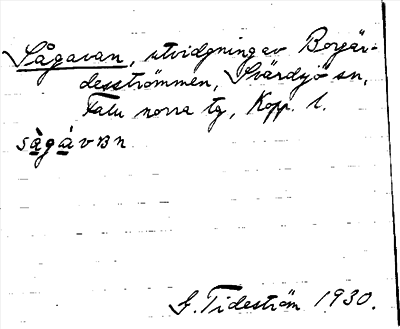 Sågavan, utvidgning av Borgär-
desströmmen, Svärdsjö sn,
Falu norra tg, Kopp. l.
sàgávвn
G. Tideström 1930.